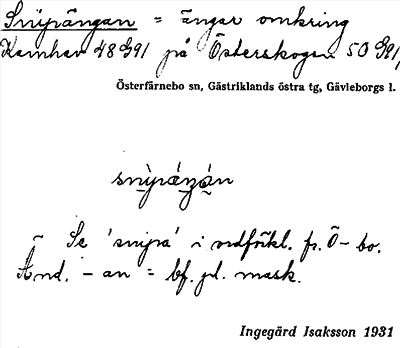 Snipängan = ängar omkring
Kamhav 48 G91 på Österskogen 50 G91,
Österfärnebo sn, Gästriklands östra tg, Gävleborgs l.
Se 'snipa' i ordförkl. fr. Ö-bo.
Änd. -an = bf. pl. mask.
Ingegärd Isaksson 1931